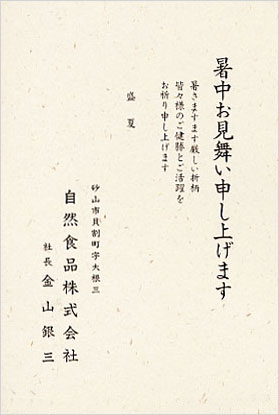 暑中お見舞い申し上げます
暑さますます厳しい折柄
皆々様のご健勝とご活躍を
お祈り申し上げます
盛夏
砂山市貝割町字大根三
自然食品株式会社
社長 金山銀三